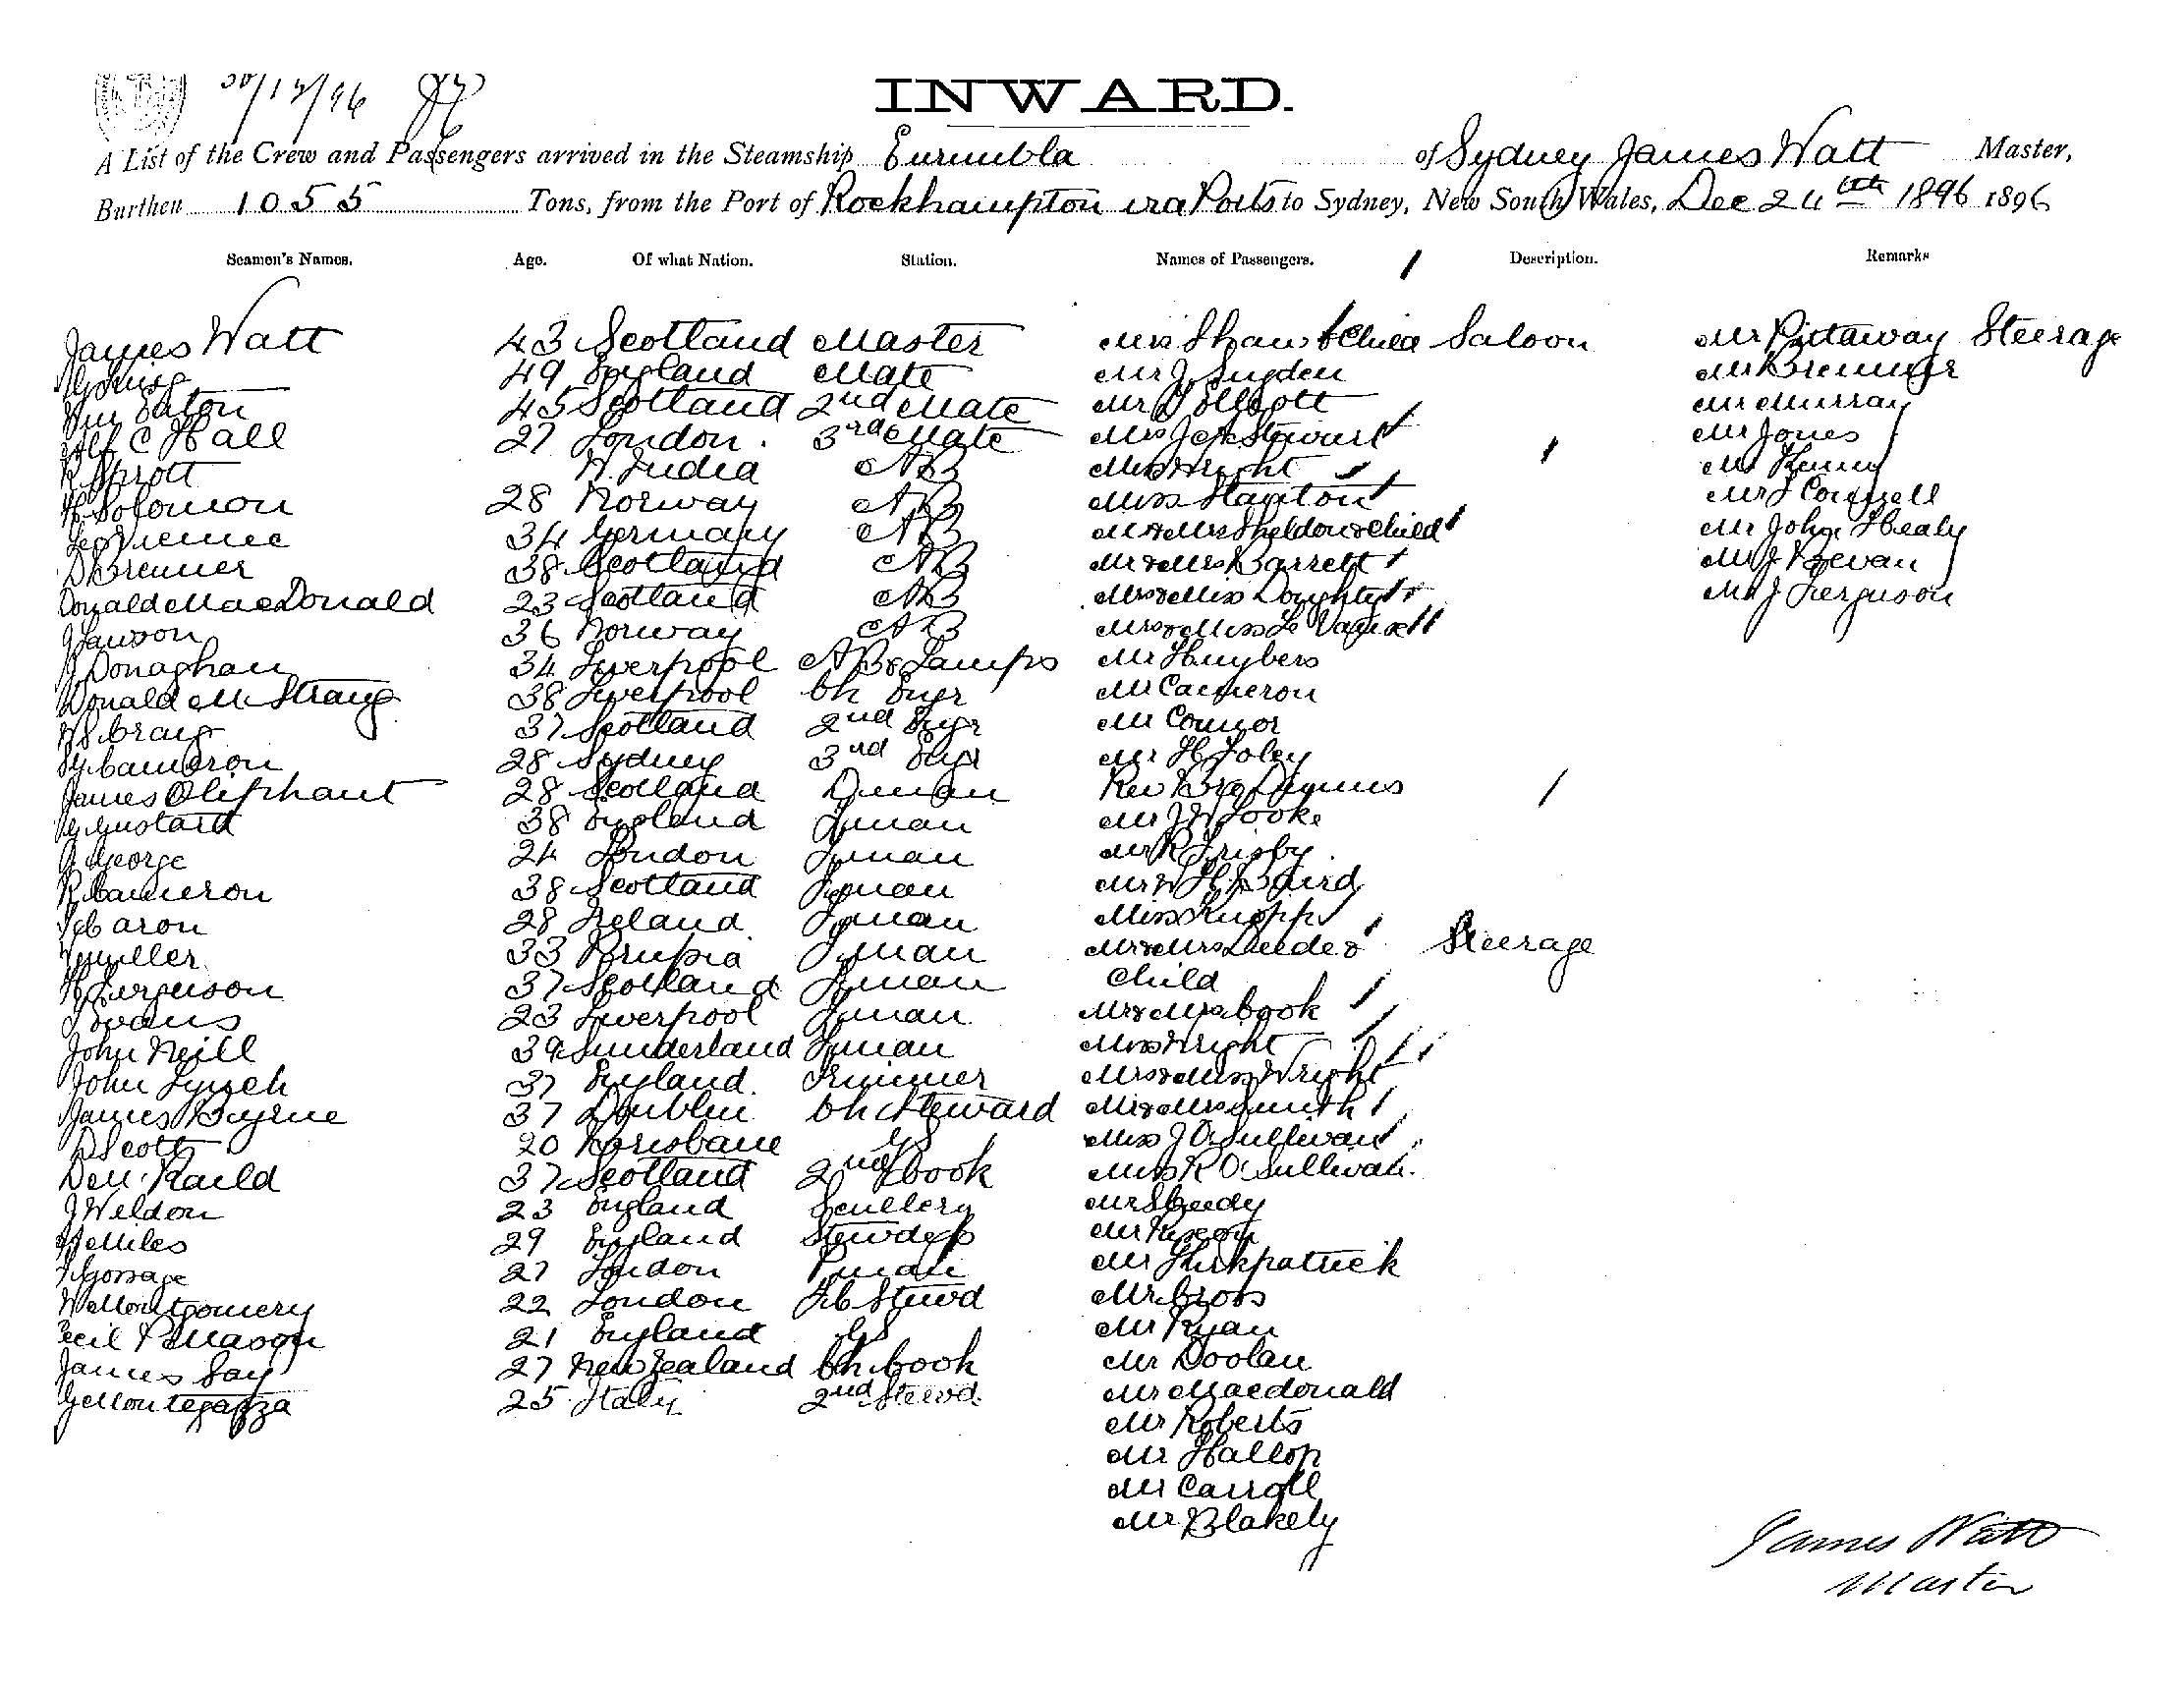 30/12/96
INWARD.
A List of the Crew and Passengers arrived in the Steamship Eurimbla of Sydney James Watt Master,
Burthen 1055 Tons, from the Port of Rockhampton via Ports to Sydney, New South Wales, Dec 24th 1896 1896
Seamen's Names. Age. Of what Nation. Station. Names of Passengers. Description. Remarks
James Watt 43 Scotland Master Mrs Shaw & Child Saloon Mr Pittaway Steerage
49 England Mate Mr J. Sugden Mr Bremner
Wm Eaton 45 Scotland 2nd Mate Mr Mr Murray
Alf C Hall 27 London. 3rd Mate Mrs Stewart Mr Jones
R Sprott W. India AB Miss Wright Mr Kenny
H Solomon 28 Norway AB Miss Stanton Mr J Connell
34 Germany AB Mr & Mrs Sheldon & Child Mr John Healy
D Bremner 38 Scotland AB Mr & Mrs Barrett Mr J Bevan
Donald MacDonald 23 Scotland AB Mrs & Miss Doughty Mr J Ferguson
J Lawson 36 Norway AB Mrs & Miss Le
J Donaghan 34 Liverpool AB & Lamps Mr Huybers
Donald M Strang 38 Liverpool Ch Engr Mr Cameron
W S Craig 37 Scotland 2nd Engr Mr Connor
Cameron 28 Sydney 3rd Engr Mr H Foley
James Oliphant 28 Scotland Dman Rev Bro
Gustard 38 England Fman Mr J W Cooke
George 24 London Fman Mr R Frisby.
R Cameron 38 Scotland Fman Mr W H Baird
Caron 28 Ireland Fman Miss Knopp
Muller 33 Prussia Fman Mr & Mrs & Steerage
H Ferguson 37 Scotland Fman Child
Evans 23 Liverpool Fman Mr & Mrs Cook
John Neill 39 Sunderland Fman Miss Wright
John Lynch 37 England. Trimmer Mrs & Miss Wright
James Byrne 37 Dublin Ch Steward Mr & Mrs Smith
D Scott 20 Brisbane GS Miss J O'Sullivan
37 Scotland 2nd Cook Miss R O'Sullivan.
J Weldon 23 England Scullery Mr Sheedy
Miles 29 England Stewdess Mr
Gorrage 27 London Pman Mr Kirkpatrick
W Montgomery 22 London FC Stewd Mr Cross
Cecil Mason 21 England GS Mr Ryan
James Say 27 New Zealand Ch Cook Mr Doolan
G Montegazza 25 Italy 2nd Stewd. Mr Macdonald
Mr Roberts
Mr Hallop
Mr Carroll
Mr Blakely
James Watt
Master